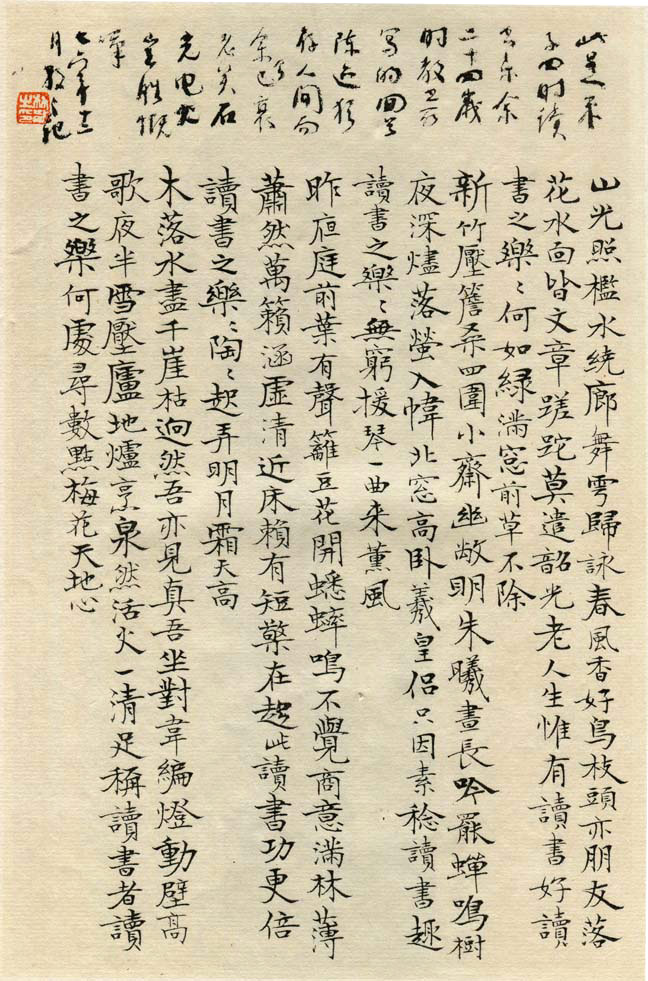 此是朱
子四时讀
书乐余
二十四歲
时教
寫的回首
陳迹犹
存人間而
余已衰
老矣石
光电火
豈勝慨
嘆
七六年十二
月 记
山光照檻水繞廊舞雩歸詠春風香好鳥枝頭亦朋友落
花水面皆文章蹉跎莫遣韶光老人生惟有讀書好讀
書之樂〻何如綠滿窓前草不除
新竹壓簷桑四圍小齋幽敞明朱曦晝長吟罷蟬鳴樹
夜深燼落螢入幃北窓高臥羲皇侶只因素稔讀書趣
讀書之樂〻無窮援琴一曲来薰風
昨夜庭前葉有聲籬豆花開蟋蟀鳴不覺商意滿林薄
蕭然萬籟涵虛清近床賴有短檠在趁此讀書功更倍
讀書之樂〻陶〻起弄明月霜天高
木落水盡千崖枯迥然吾亦見真吾坐對韋編燈動壁高
歌夜半雪壓廬地爐烹泉然活火一清足稱讀書者讀
書之樂何處尋數點梅花天地心